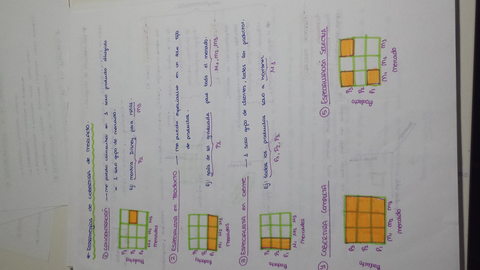 * Estrategias de cobertura de mercado:
① CONCENTRACIÓN → me puedo concentrar en 1 solo producto dirigido
a 1 solo tipo de mercado.
Ej: para niños
P2 M3
Producto
P3
P2
P1
M1 M2 M3
mercados
② ESPECIALIZA en PRODUCTO → Me puedo especializar en un solo tipo
de producto.
Ej: para todo el mercado.
P1 M1, M2, M3
Producto
P3
P2
P1
M1 M2 M3
mercados
③ ESPECIALISTA en CLIENTE → 1 solo tipo de clientes, todos los productos.
Ej: todos los productos solo a
P1, P2, P3 M1
Producto
P3
P2
P1
M1 M2 M3
mercados
④ COBERTURA COMPLETA
Producto
P3
P2
P1
M1 M2 M3
mercado
⑤ ESPECIALIZACIÓN SELECTIVA
Producto
P3
P2
P1
M1 M2 M3
mercado